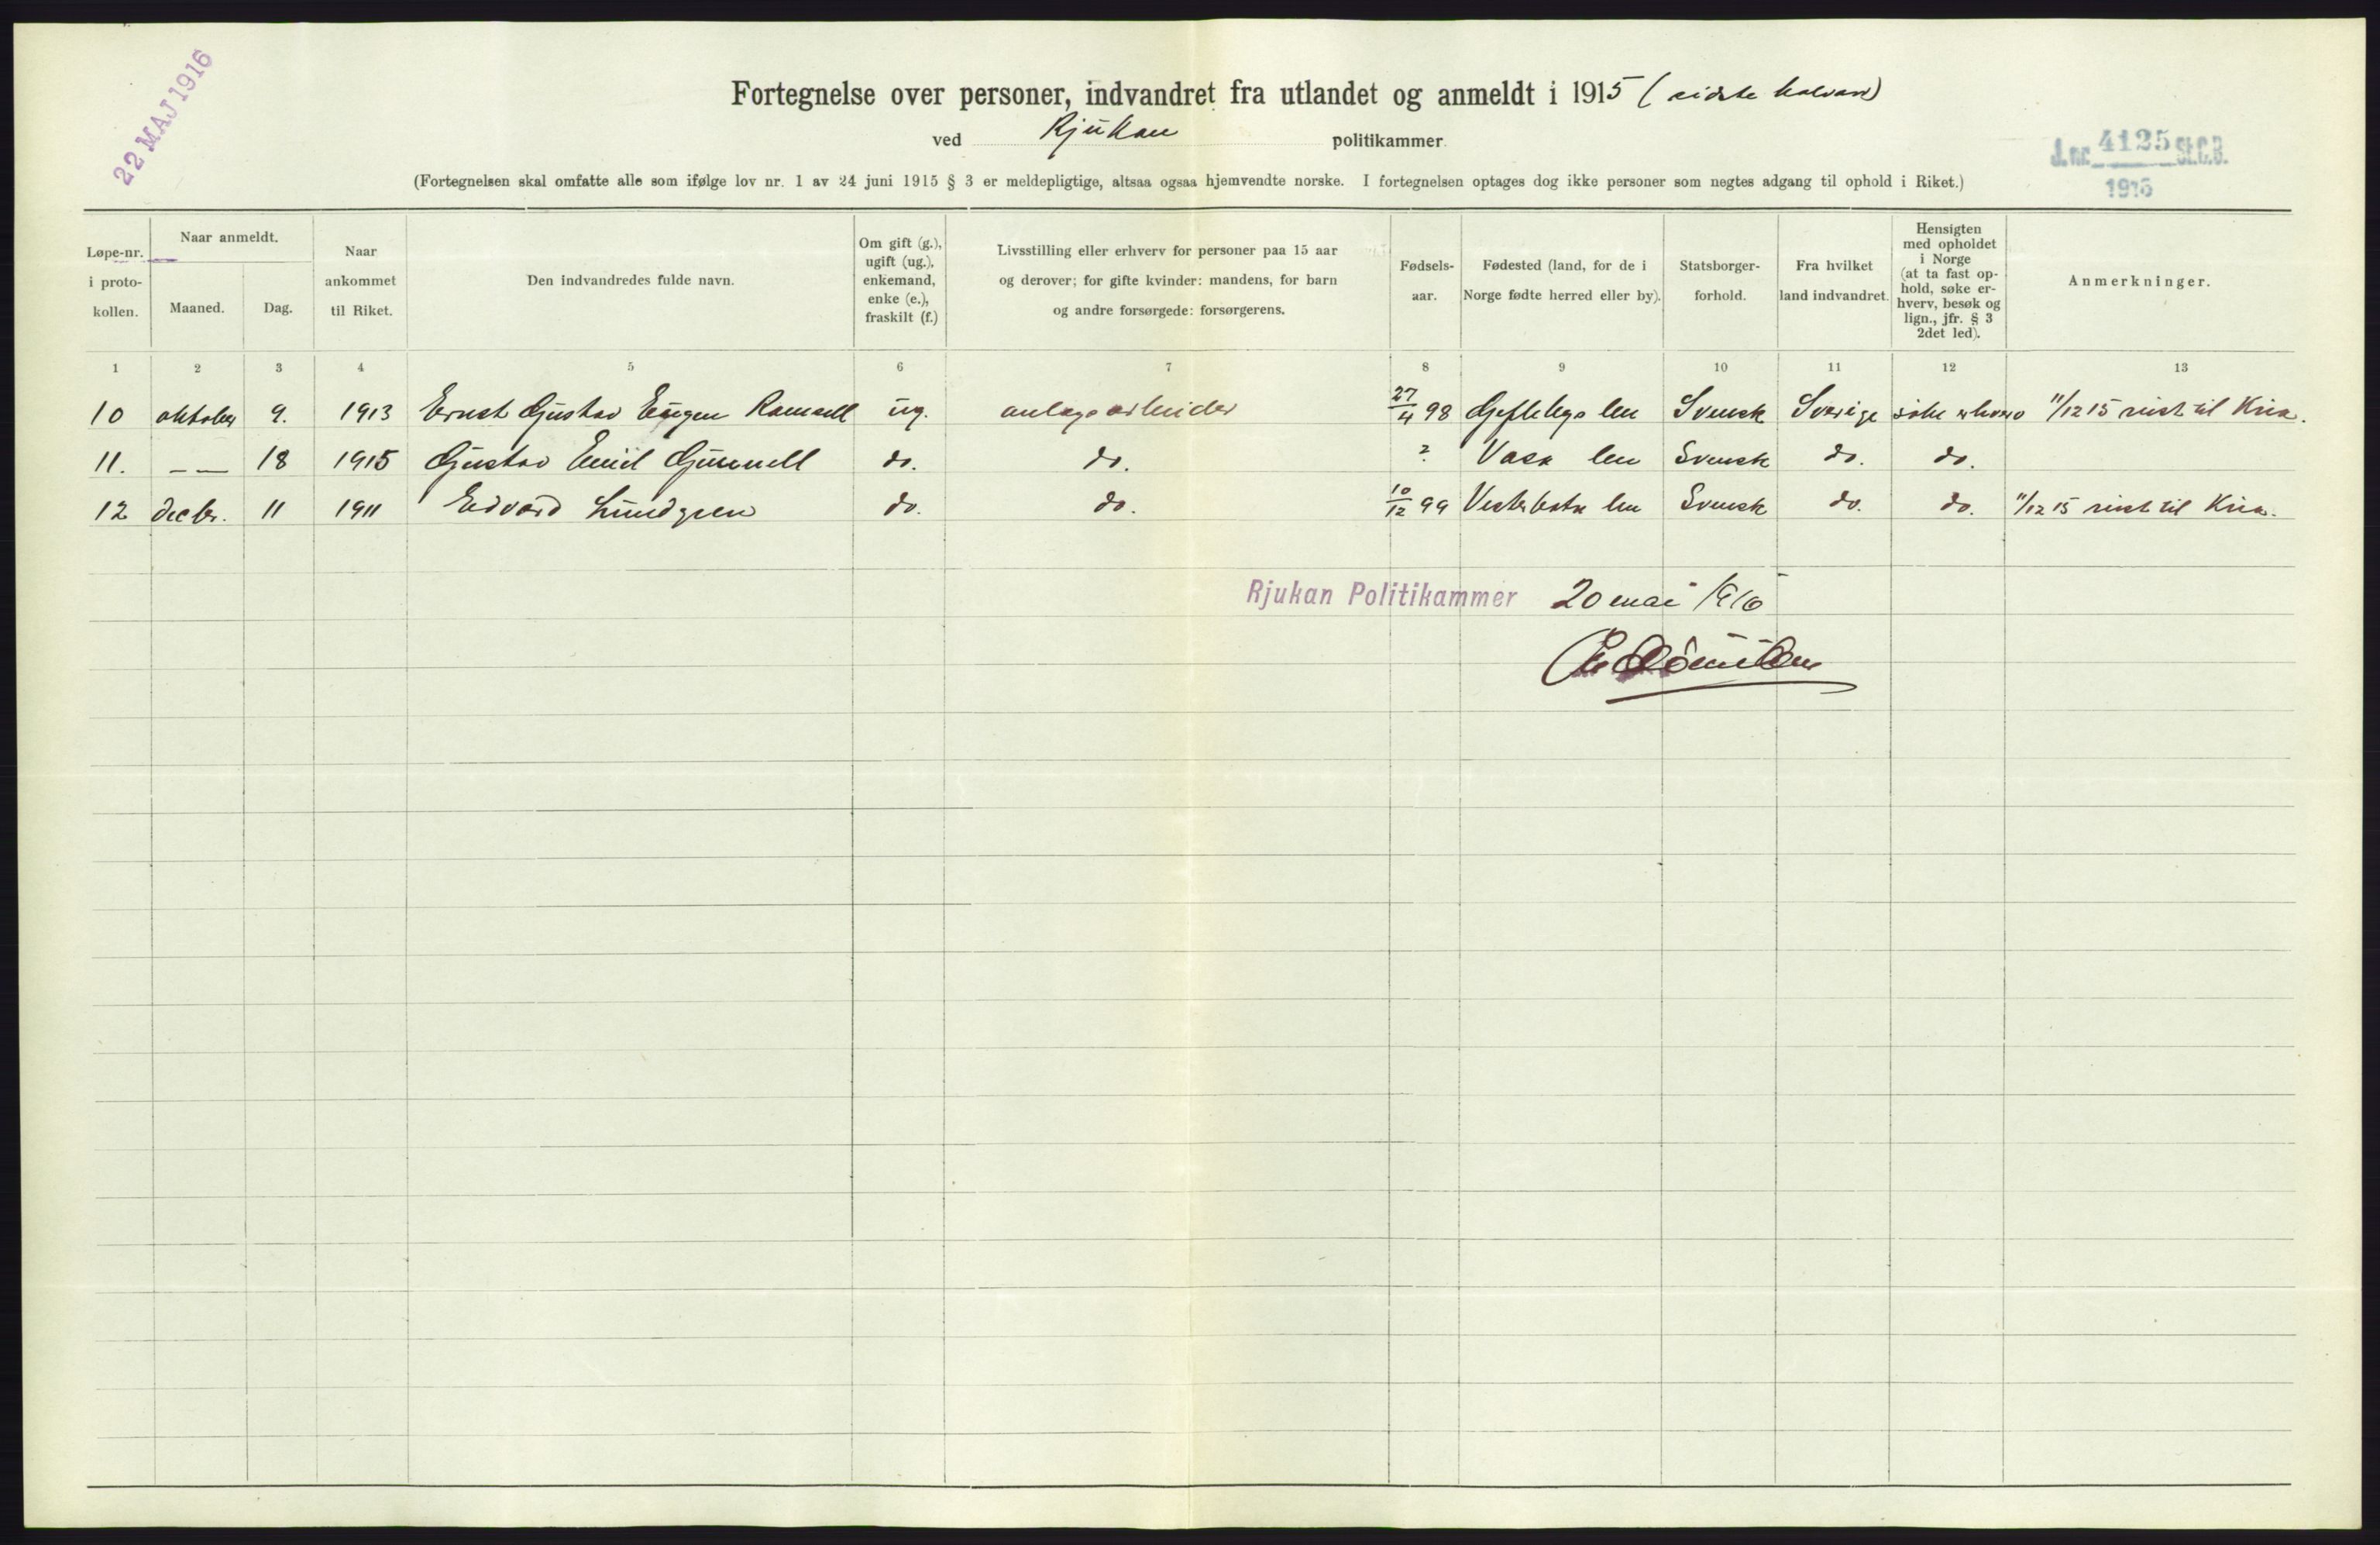 22 MAJ 1916
Fortegnelse over personer, indvandret fra utlandet og anmeldt i 1915 (sidste halvaar)
ved Rjukan politikammer.
J. nr. 4125 St.C.B.
1916
(Fortegnelsen skal omfatte alle som ifølge lov nr. 1 av 24 juni 1915 § 3 er meldepligtige, altsaa ogsaa hjemvendte norske. I fortegnelsen optages dog ikke personer som negtes adgang til ophold i Riket.)
Løpe-nr. i proto-kollen.
Naar anmeldt.
Maaned.
Dag.
Naar ankommet til Riket.
Den indvandredes fulde navn.
Om gift (g.), ugift (ug.), enkemand, enke (e.), fraskilt (f.)
Livsstilling eller erhverv for personer paa 15 aar og derover; for gifte kvinder: mandens, for barn og andre forsørgede: forsørgerens.
Fødsels-aar.
Fødested (land, for de i Norge fødte herred eller by).
Statsborger-forhold.
Fra hvilket land indvandret.
Hensigten med opholdet i Norge (at ta fast op-hold, søke er-hverv, besøk og lign., jfr. § 3 2det led).
Anmerkninger.
1 2 3 4 5 6 7 8 9 10 11 12 13
10 oktober 9. 1913 Ernst Gustav Eugen Ramsell ug. anlegsarbeider 27/4 98 Gefleborgs len Svensk Sverige søke erhverv 11/12 15 reist til Kria.
11. — — 18 1915 Gustav Emil Gunnell do. do. ? Vasa len Svensk do. do.
12 decbr. 11 1911 Edvard Lundgren do. do. 10/12 99 Vesterbotn len Svensk do. do. 11/12 15 reist til Kria.
Rjukan Politikammer 20 mai 1916